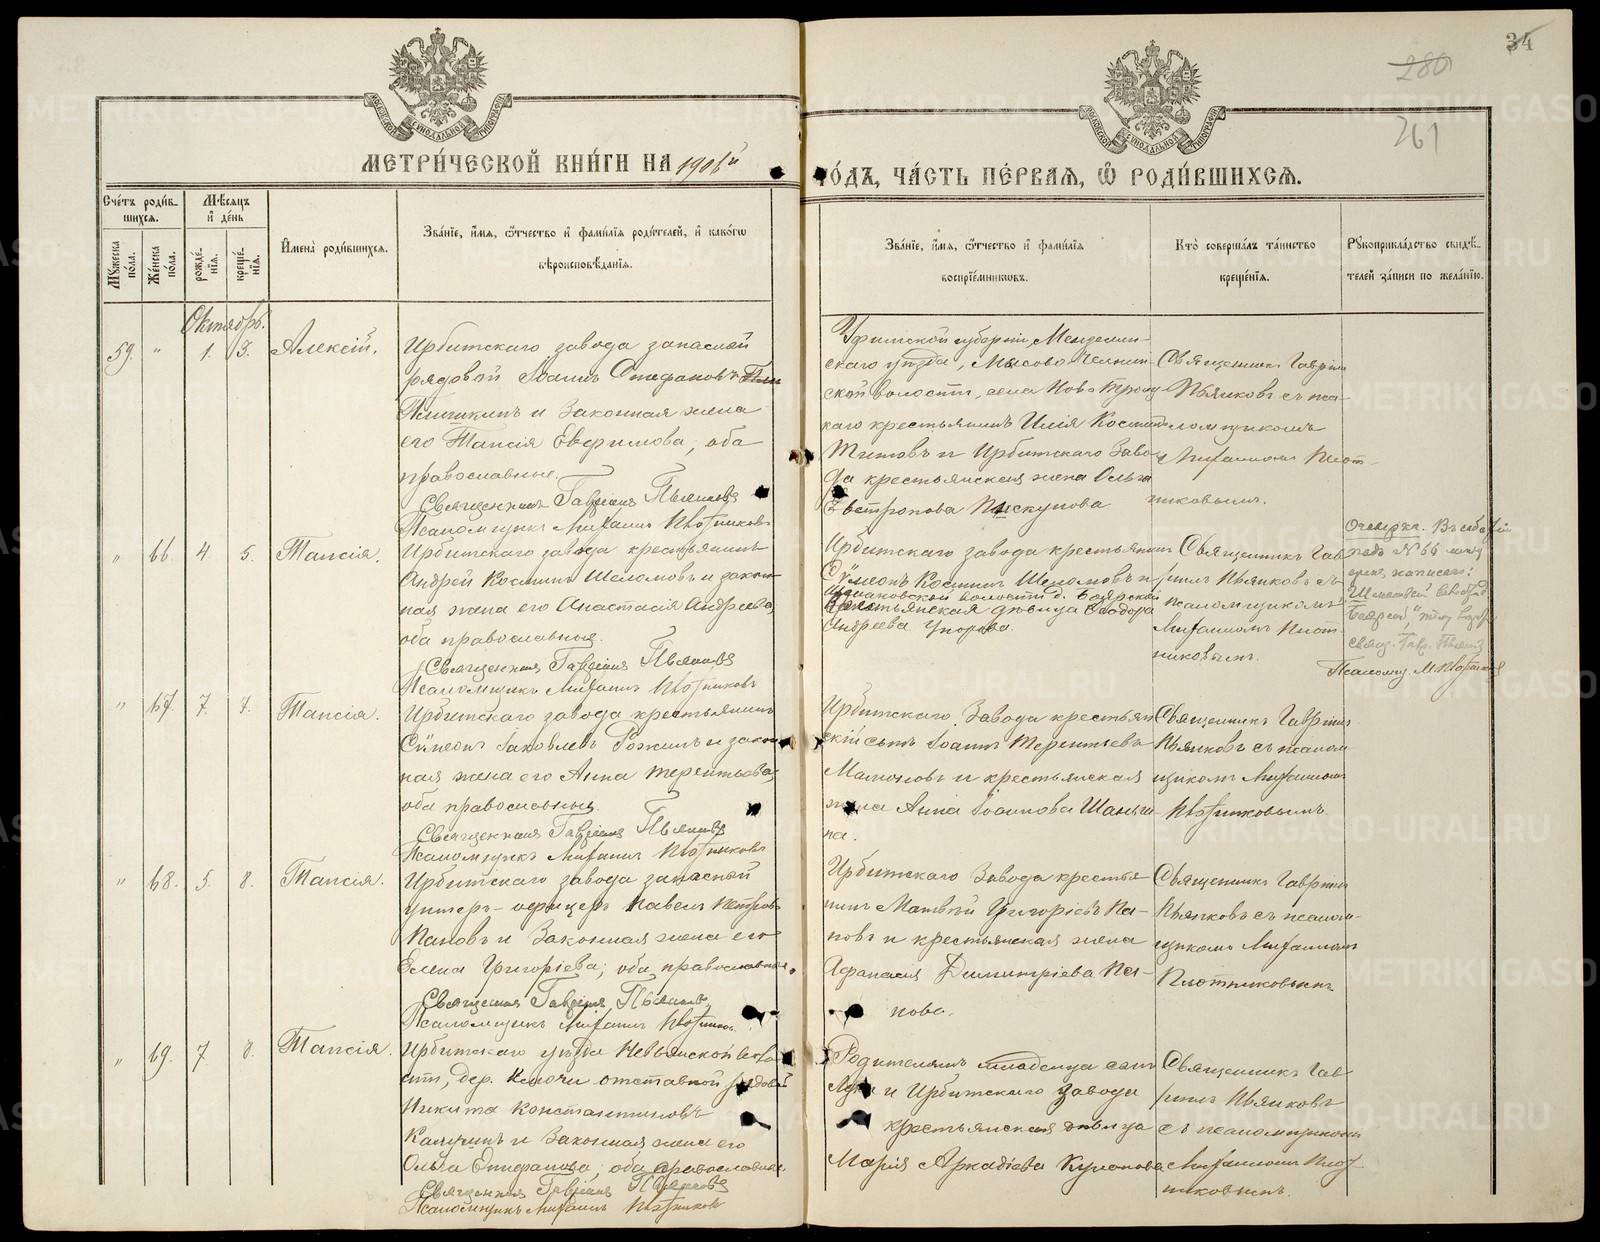 34
280
261
МОСКОВСКОЙ СѴНОДАЛЬНОЙ ТИПОГРАФІИ
МЕТРИ́ЧЕСКОЙ КНИ́ГИ НА 1901й
ГО́ДЪ, ЧА́СТЬ ПЕ́РВАЯ, Ѡ҆ РОДИ́ВШИХСЯ.
Сче́тъ роди́в-
шихся.
Мѣ́сяцъ
и҆ де́нь
Му́жеска по́ла.
Же́нска по́ла.
рожде́-
нїя.
креще́-
нїя.
И҆мена̀ роди́вшихся.
Зва́нїе, и҆́мя, ѻ҆́тчество и҆ фами́лїя роди́телей, и҆ како́гѡ
вѣроисповѣ́данїя.
Зва́нїе, и҆́мя, ѻ҆́тчество и҆ фами́лїя
воспрїе́мниковъ.
Кто̀ соверша́лъ та́инство
креще́нїя.
Рукоприкла́дство свидѣ́-
телей за́писи по жела́нїю.
Октябрь.
59. " 1. 3. Алексій.
Ирбитскаго завода запасный
рядовой Іоаннъ Стефановъ
и Законная жена
его Таисія Евфимова, оба
православные.
Священникъ Гавріилъ Пьянковъ
Псаломщикъ Михаилъ Плотниковъ
Уфимской губерніи, Мензелин-
скаго уѣзда,
ской волости, села Ново Троиц-
каго крестьянинъ Илія
Титовъ и Ирбитскаго Заво-
да крестьянская жена Ольга
Пискунова.
Священникъ Гавріилъ
Пьянковъ съ пса-
ломщикомъ
Михаиломъ Плот-
никовымъ.
" 66 4 5. Таисія.
Ирбитскаго завода крестьянинъ
Андрей Косминъ Шеломовъ и закон-
ная жена его Анастасія Андреева,
оба православные.
Священникъ Гавріилъ Пьянковъ
Псаломщикъ Михаилъ Плотниковъ
Ирбитскаго завода крестьянинъ
Сѵмеонъ Косминъ Шеломовъ и
волости д. Боярской
крестьянская дѣвица Ѳеодора
Андреева
Священникъ Гав-
ріилъ Пьянковъ съ
псаломщикомъ
Михаиломъ Плот-
никовымъ.
подъ № 66
свящ. Гавр. Пьянк
Псаломщ. М. Плотников
" 67. 7. 7. Таисія.
Ирбитскаго завода крестьянинъ
Сѵмеонъ Іаковлевъ и закон-
ная жена его Анна Терентьева,
оба православные.
Священникъ Гавріилъ Пьянковъ
Псаломщикъ Михаилъ Плотниковъ
Ирбитскаго Завода крестьян-
скій сынъ Іоаннъ Терентьевъ
и крестьянская
жена Анна Іоаннова Шаньги-
на.
Священникъ Гавріилъ
Пьянковъ съ псалом-
щикомъ Михаиломъ
Плотниковымъ.
" 68. 5. 8. Таисія.
Ирбитскаго завода запасный
унтеръ-офицеръ Павелъ Петровъ
Пановъ и Законная жена его
Елена Григоріева, оба православные.
Священникъ Гавріилъ Пьянковъ
Псаломщикъ Михаилъ Плотников
Ирбитскаго Завода крестья-
нинъ Матвѣй Григорьевъ Па-
новъ и крестьянская жена
Аѳанасія Димитріева Па-
нова.
Священникъ Гавріилъ
Пьянковъ съ псалом-
щикомъ Михаиломъ
Плотниковымъ
" 69. 7 8. Таисія.
Ирбитскаго уѣзда Невьянской воло-
сти, дер. Ключи отставной рядовой
Никита Константиновъ
и Законная жена его
Ольга Стефанова, оба православные.
Священникъ Гавріилъ Пьянковъ
Псаломщикъ Михаилъ Плотников
младенца
и Ирбитскаго завода
крестьянская дѣвица
Марія Аркадіева
Священникъ Гав-
ріилъ Пьянковъ
съ псаломщикомъ
Михаиломъ Плот-
никовымъ.
METRIKI.GASO-URAL.RU